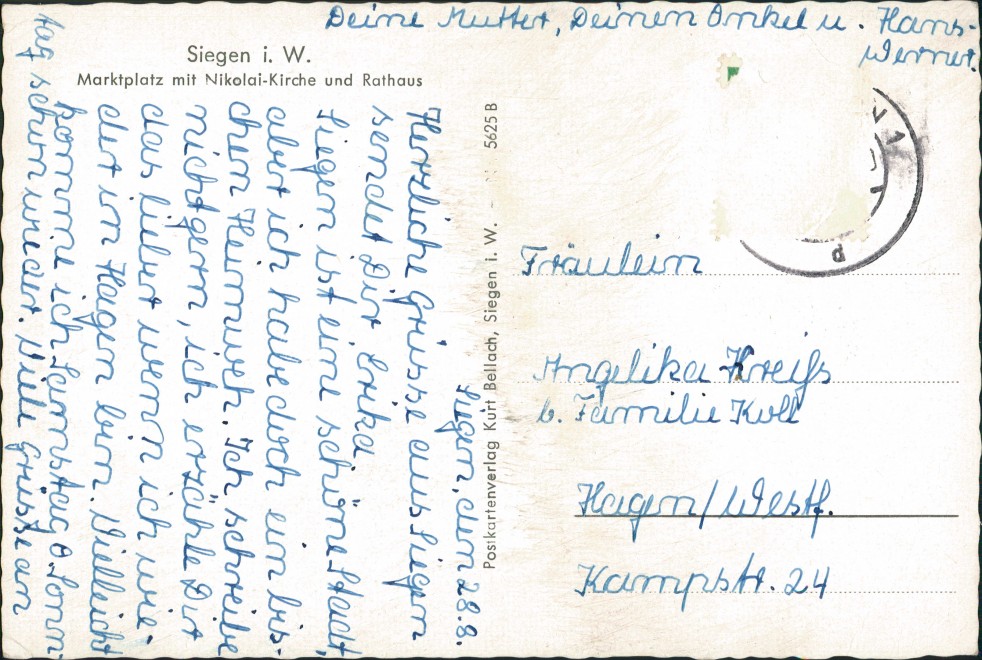 Siegen i. W.
Marktplatz mit Nikolai-Kirche und Rathaus
Siegen, den 28.8.
Herzliche Grüsse aus Siegen
sendet Dir Erika.
Siegen ist eine schöne Stadt,
aber ich habe doch ein bis-
chen Heimweh. Ich schreibe
nicht gern, ich erzähle Dir
das lieber wenn ich wie-
der in Hagen bin. Vielleicht
komme ich Samstag o. Sonn-
tag schon wieder. Viele Grüsse an
Deine Mutter, Deinen Onkel u. Hans-
Werner.
Postkartenverlag Kurt Bellach, Siegen i. W.
5625 B
Fräulein
Angelika Kreiß
b. Familie Koll
Hagen/Westf.
Kampstr. 24